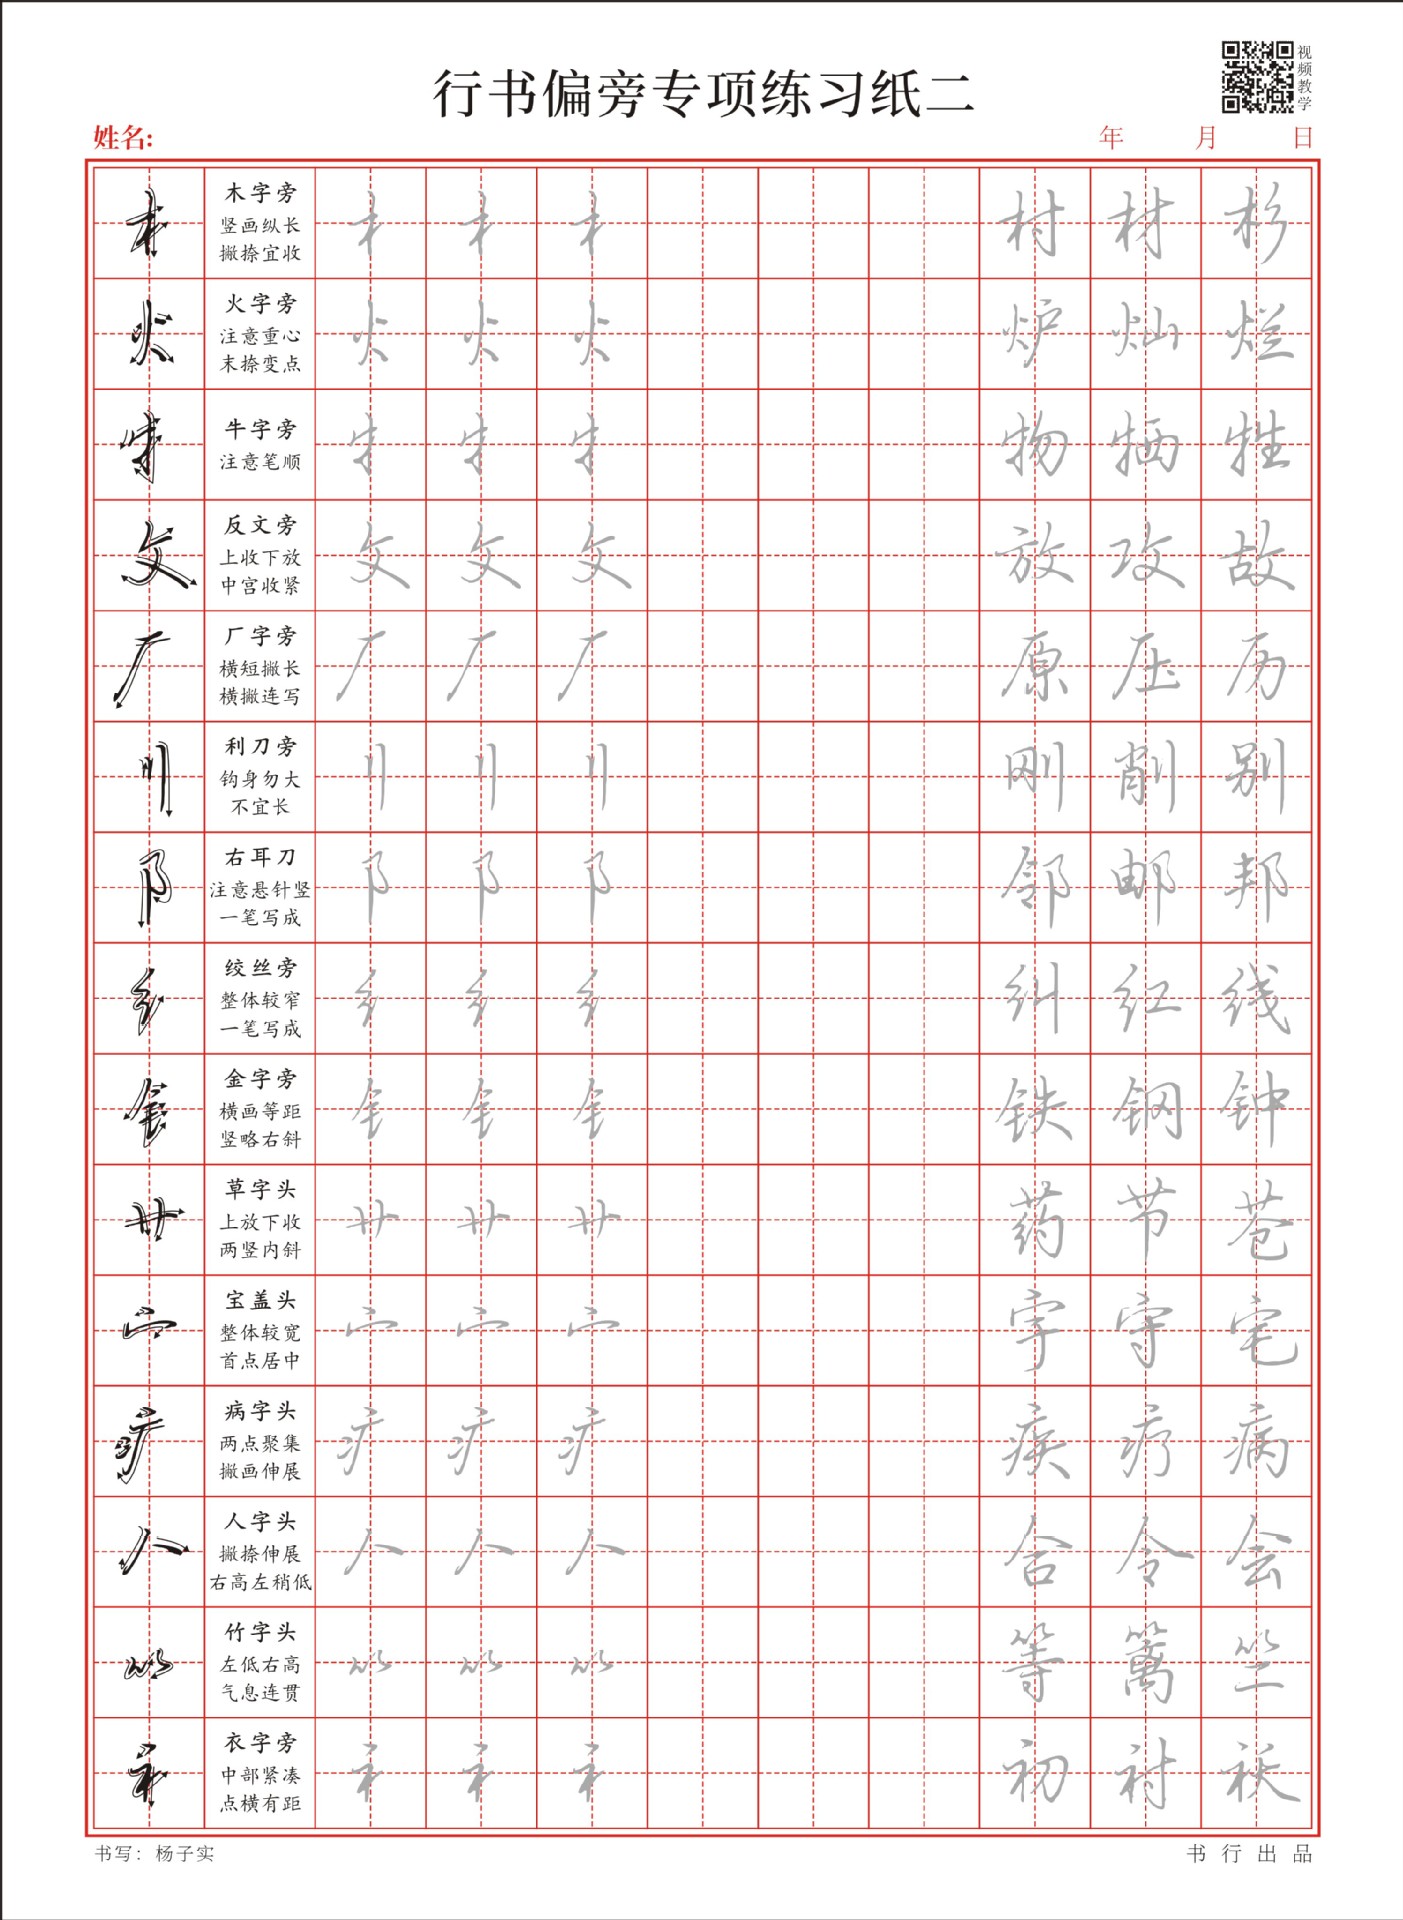 视频教学
行书偏旁专项练习纸二
姓名:
年 月 日
木字旁
竖画纵长
撇捺宜收
村 材 杉
火字旁
注意重心
末捺变点
炉 灿 烂
牛字旁
注意笔顺
物 牺 牲
反文旁
上收下放
中宫收紧
放 攻 故
厂字旁
横短撇长
横撇连写
原 压 历
利刀旁
钩身勿大
不宜长
刚 削 别
右耳刀
注意悬针竖
一笔写成
邻 邮 邦
绞丝旁
整体较窄
一笔写成
纠 红 线
金字旁
横画等距
竖略右斜
铁 钢 钟
草字头
上放下收
两竖内斜
药 节 苍
宝盖头
整体较宽
首点居中
字 守 宅
病字头
两点聚集
撇画伸展
疾 疗 病
人字头
撇捺伸展
右高左稍低
合 令 会
竹字头
左低右高
气息连贯
等 篱 竺
衣字旁
中部紧凑
点横有距
初 衬 袄
书写：杨子实
书行出品